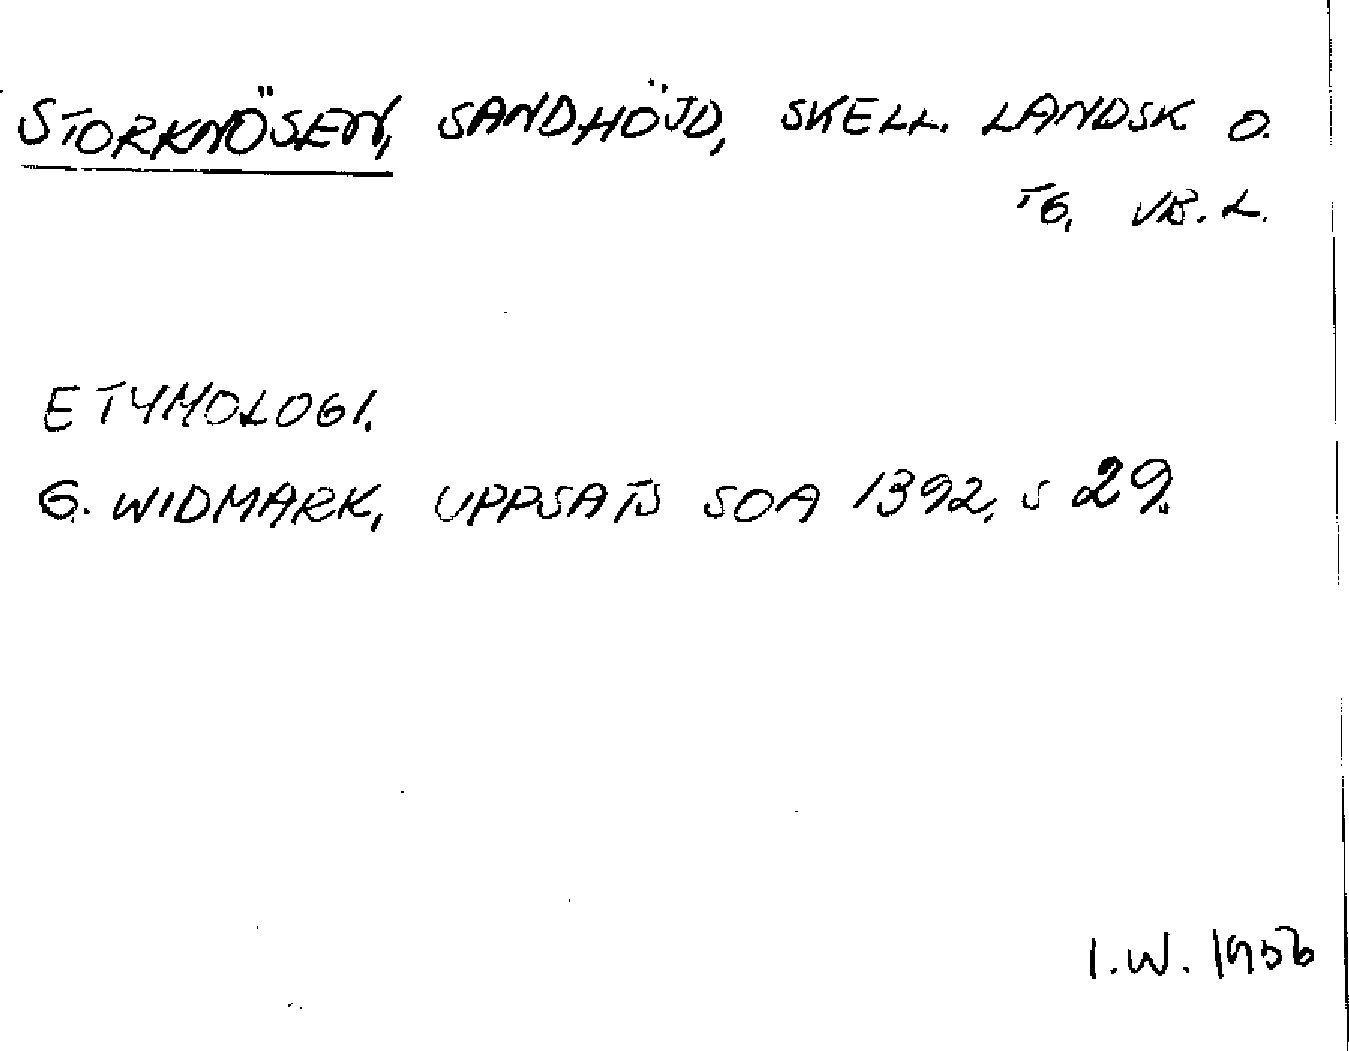 STORKNÖSEN, SANDHÖJD, SKELL. LANDSK O.
TG, VB. L.
ETYMOLOGI.
G. WIDMARK, UPPSATS SOA 1392, S 29.
I.W. 1956